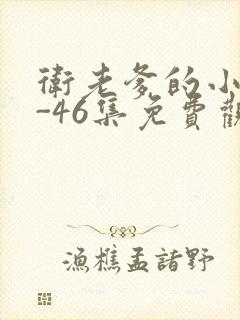 衛老爹的小
-46集免費觀
漁樵孟諸野